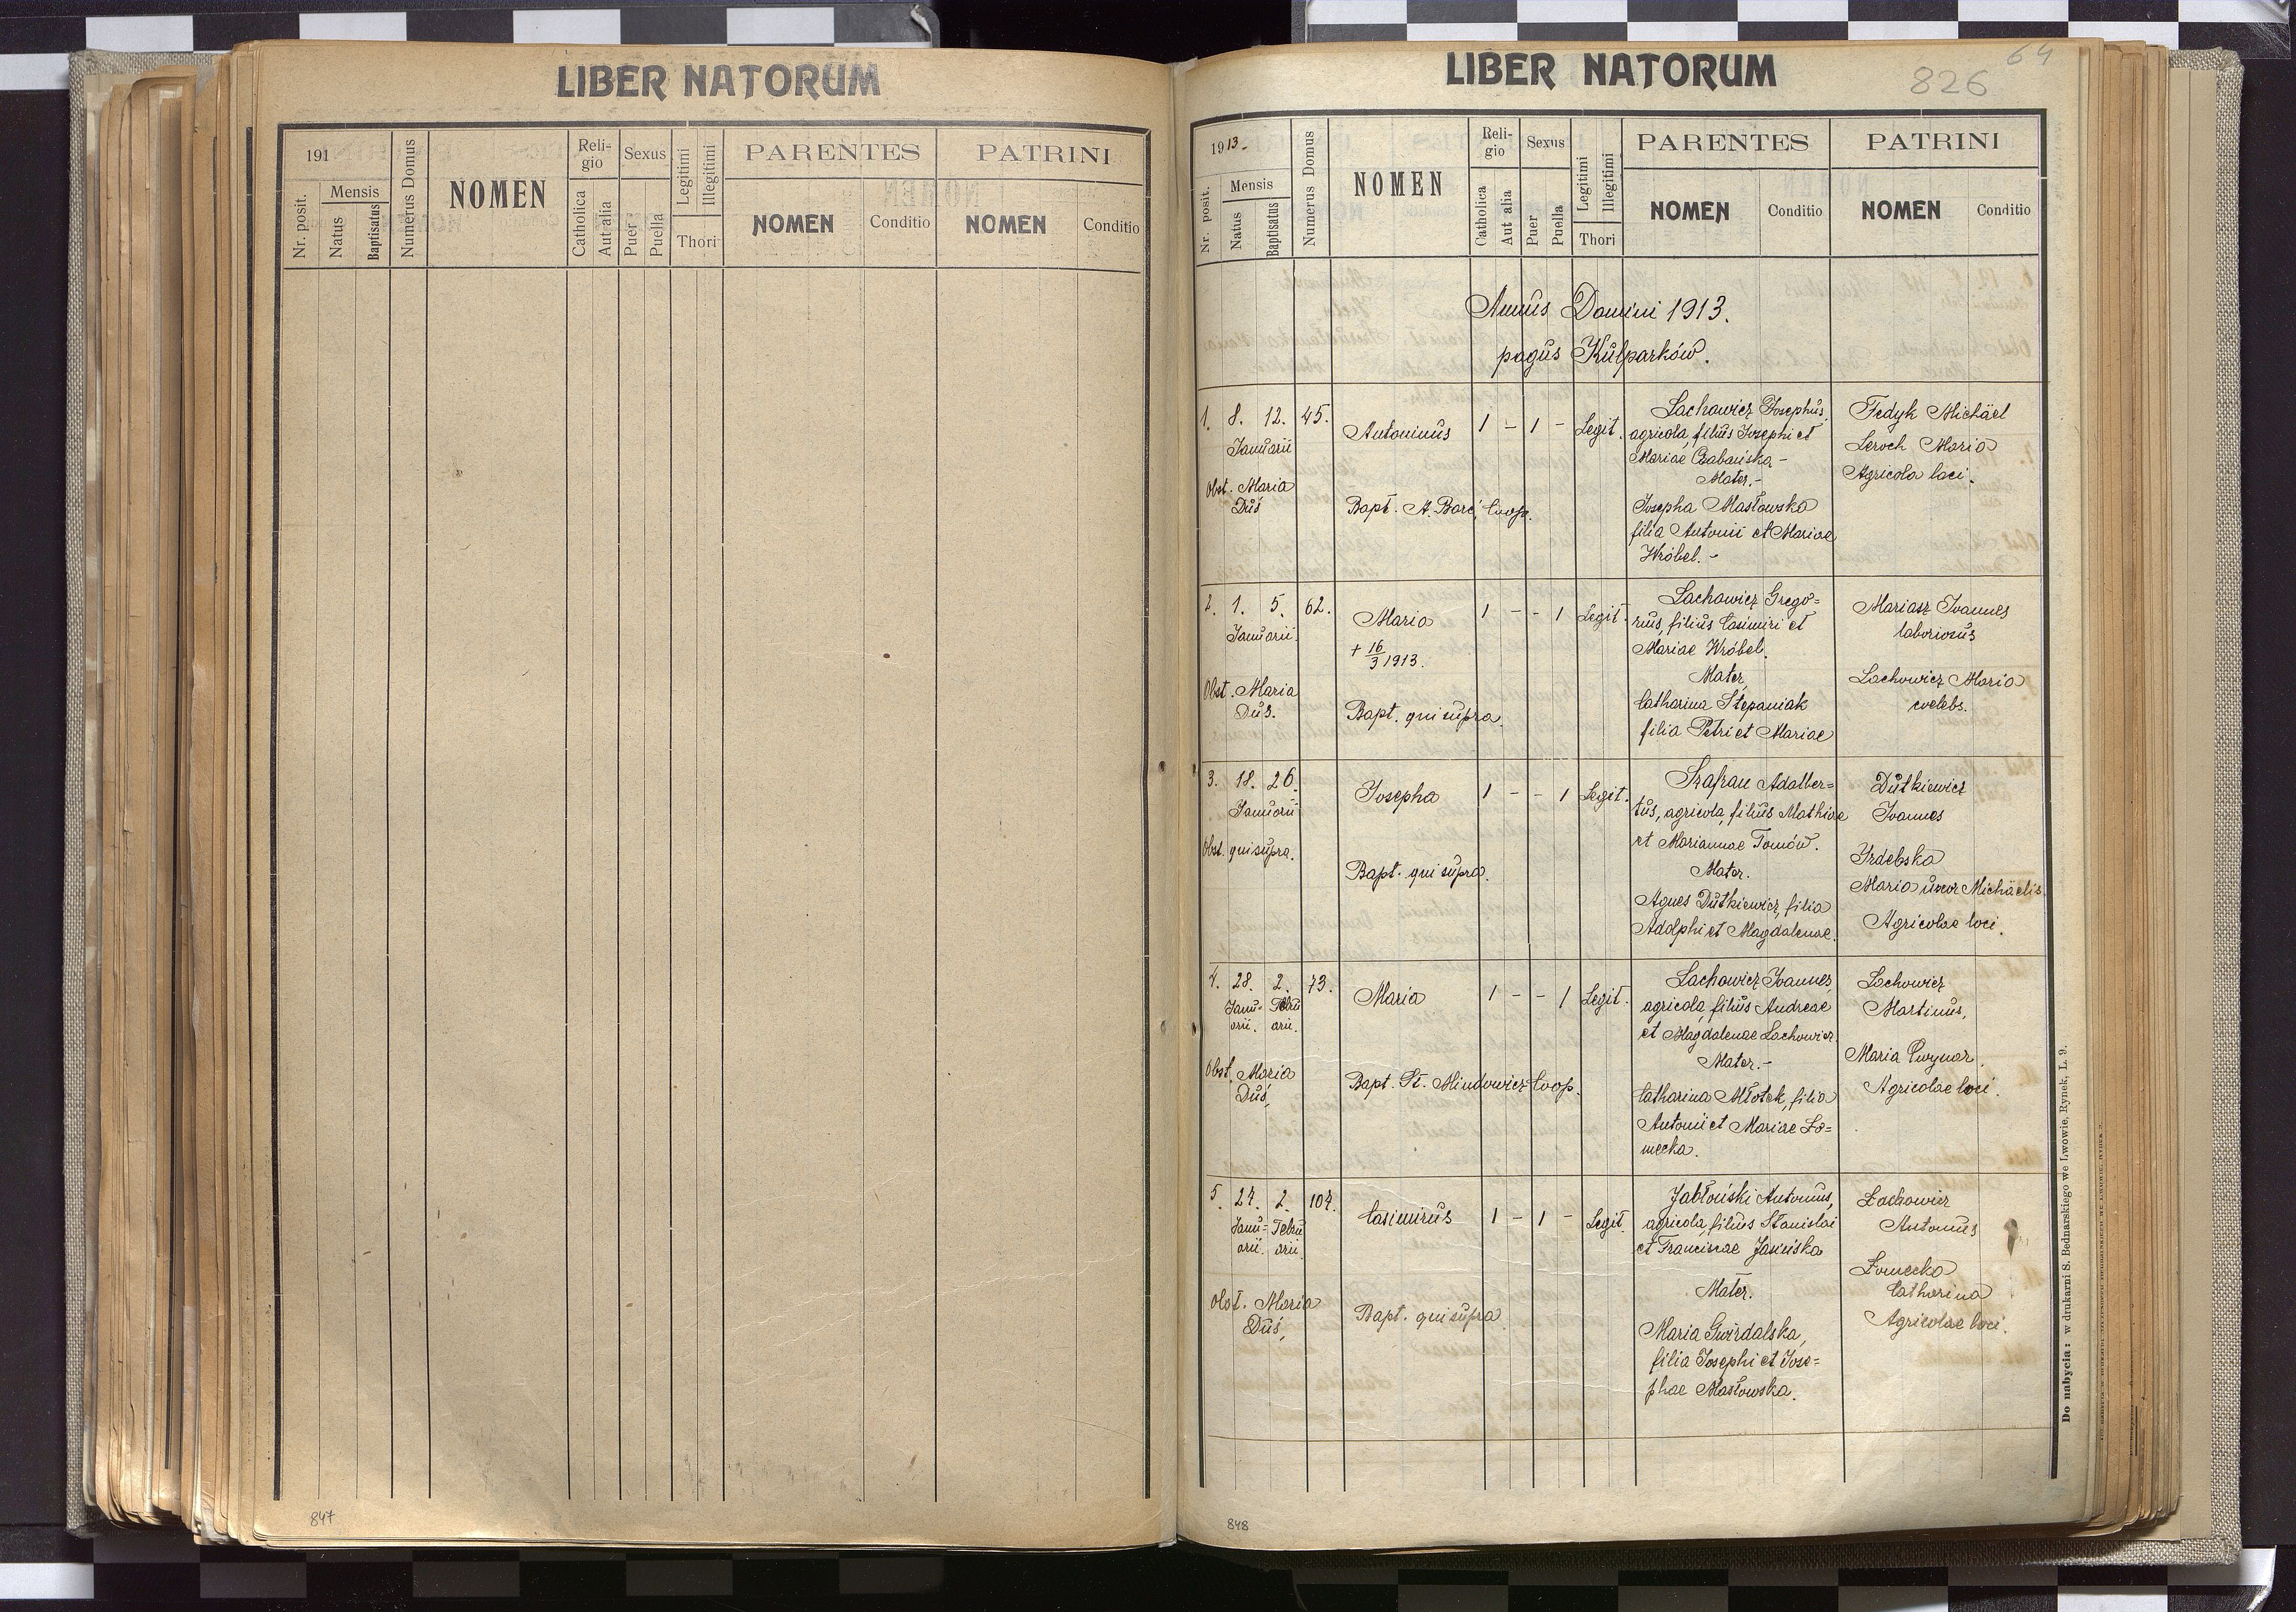 LIBER NATORUM
191
Mensis
Nr. posit.
Natus
Baptisatus
Numerus Domus
NOMEN
Reli-
gio
Catholica
Aut alia
Sexus
Puer
Puella
Legitimi
Illegitimi
Thori
PARENTES
NOMEN
Conditio
PATRINI
NOMEN
Conditio
847
LIBER NATORUM
826
64
1913.
Mensis
Nr. posit.
Natus
Baptisatus
Numerus Domus
NOMEN
Reli-
gio
Catholica
Aut alia
Sexus
Puer
Puella
Legitimi
Illegitimi
Thori
PARENTES
NOMEN
Conditio
PATRINI
NOMEN
Conditio
Annus Domini 1913.
pagus Kulparków.
1. 8. 12. 45.
Januarii
Obst. Maria
Duś
Antonius
Bapt. A. Barć, Coop.
1 - 1 - Legit.
Lachowicz Josephus,
agricola, filius Josephi et
Mariae Czabańska -
Mater.-
Josepha Masłowska
filia Antonii et Mariae
Wróbel.-
Fedyk Michäel
Leroch Maria
Agricola loci.
2. 1. 5. 62.
Januarii
Obst. Maria
Duś.
Maria
+ 16/3 1913.
Bapt. qui supra.
1 - - 1 Legit.
Lachowicz Grego=
rius, filius Casimiri et
Mariae Wróbel.
Mater,
Catharina Stepaniak
filia Petri et Mariae
Mariasz Joannes
laboriosus
Lachowicz Maria
coelebs.
3. 18. 26.
Januarii
Obst. qui supra.
Josepha
Bapt. qui supra.
1 - - 1 Legit.
Szafran Adalber=
tus, agricola, filius Mathiae
et Mariannae Tomów.
Mater.
Agnes Dutkiewicz, filia
Adolphi et Magdalenae.
Dutkiewicz
Joannes
Maria uxor Michäelis
Agricolae loci.
4. 28. 2. 73.
Janu= Febru
arii. arii.
Obst. Maria
Duś,
Maria
Bapt. St. Mindowicz Coop.
1 - - 1 Legit.
Lachowicz Joannes,
agricola, filius Andreae
et Magdalenae Lachowicz.
Mater.-
Catharina Młotek, filia
Antonii et Mariae Ło=
mecka.
Lachowicz
Martinus,
Maria Cwynar,
Agricolae loci.
5. 27. 2. 107.
Janu= Febru
arii. arii.
Obst. Maria
Duś,
Casimirus
Bapt. qui supra.
1 - 1 - Legit.
Jabłoński Antonius,
agricola, filius Stanislai
et Franciscae Jasińska
Mater.
Maria Gwizdalska,
filia Josephi et Jose=
phae Masłowska.
Lachowicz
Antonius
Łomecka
Catharina
Agricolae loci.
Do nabycia: w drukarni S. Bednarskiego we Lwowie, Rynek, L. 9.
848